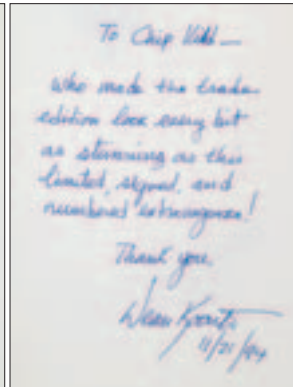 To Chip Kidd —
who made the trade
edition look every bit
as stunning as this
limited, signed, and
numbered extravaganza!
Thank you,
Dean Koontz
11/21/04